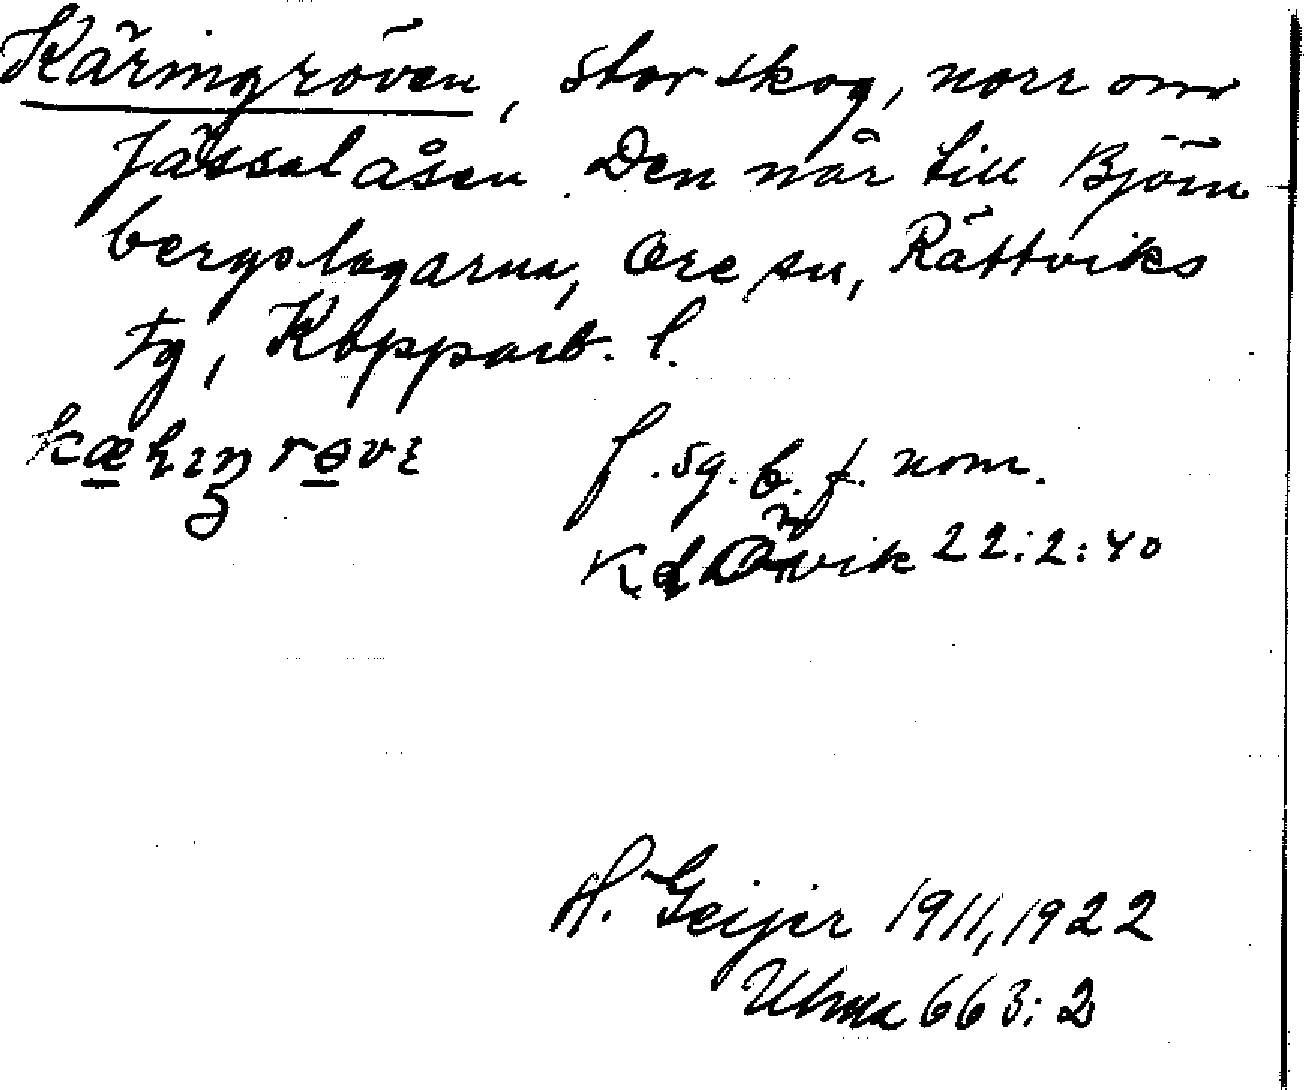 Käringröven, stor skog, norr om
Jässelåsen. Den når till Björn-
bergslagarna, Ore sn, Rättviks
tg, Kopparb. l.
f. sg. b. f. nom.
22:2:40
H. Geijer 1911, 1922
Ulma 663:2